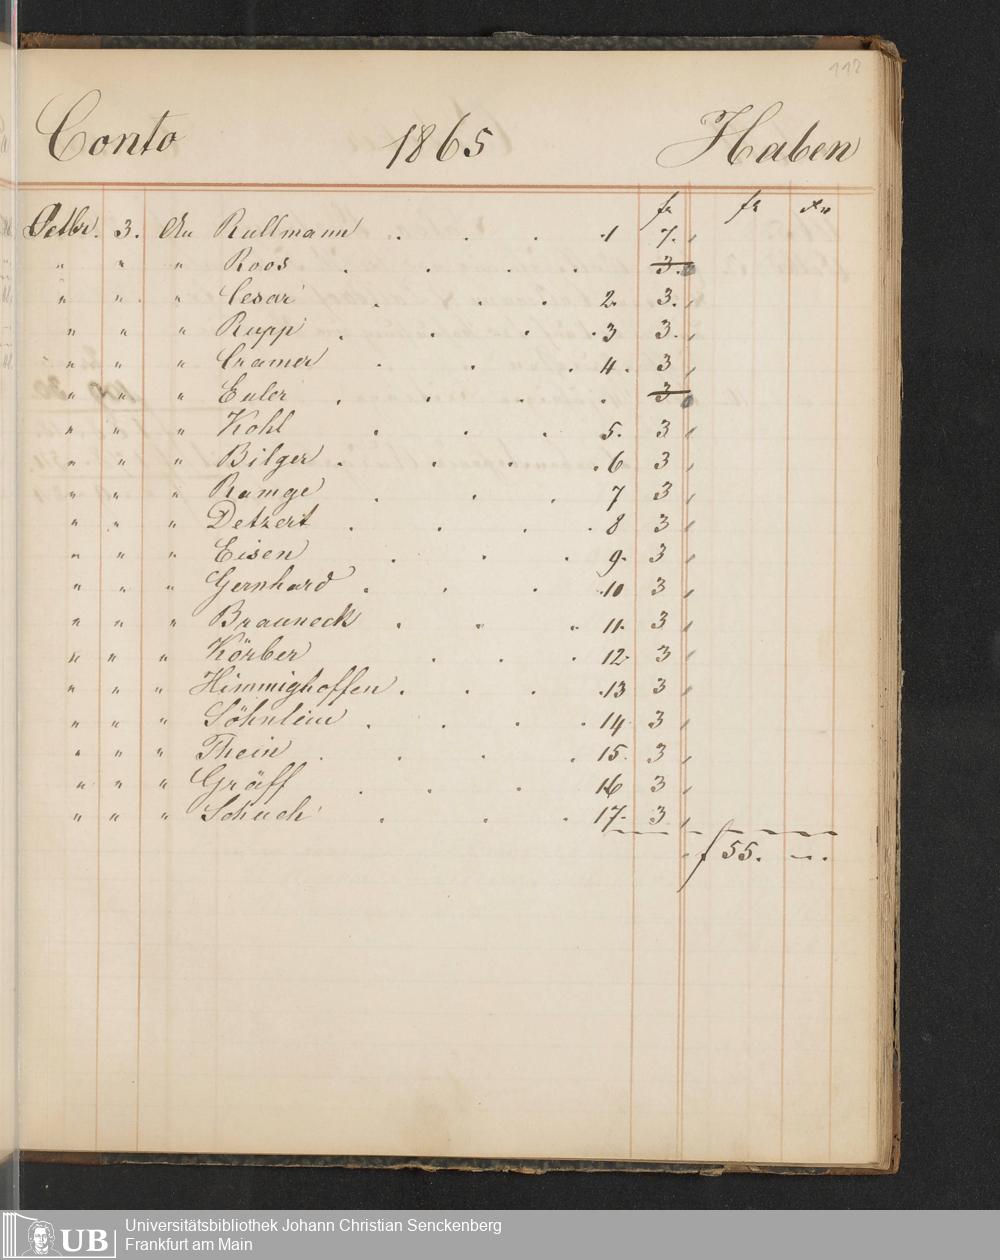 112
Conto 1865 Haben
fr fr Xr
Octbr. 3. An Rullmann . . . . 1 7.
" " " Roos . . . . 3.
" " " Cesar . . . 2. 3.
" " " Rupp . . . . 3 3.
" " " Cramer . . . 4. 3
" " " Euler . . . . 3
" " " Kohl . . . 5. 3
" " " Bilger . . . . 6 3
" " " Ramge . . . 7 3
" " " Detzert . . . . 8 3
" " " Eisen . . . 9. 3
" " " Gernhard . . . . 10 3
" " " Brauneck . . . 11. 3
" " " Körber . . . 12. 3
" " " Himmighoffen . . . . 13 3
" " " Söhnlein . . . . 14 3
" " " Thein . . . . 15. 3
" " " Gräff . . . 16 3
" " " Schuch . . . 17. 3
f 55. —.
UB
Universitätsbibliothek Johann Christian Senckenberg
Frankfurt am Main